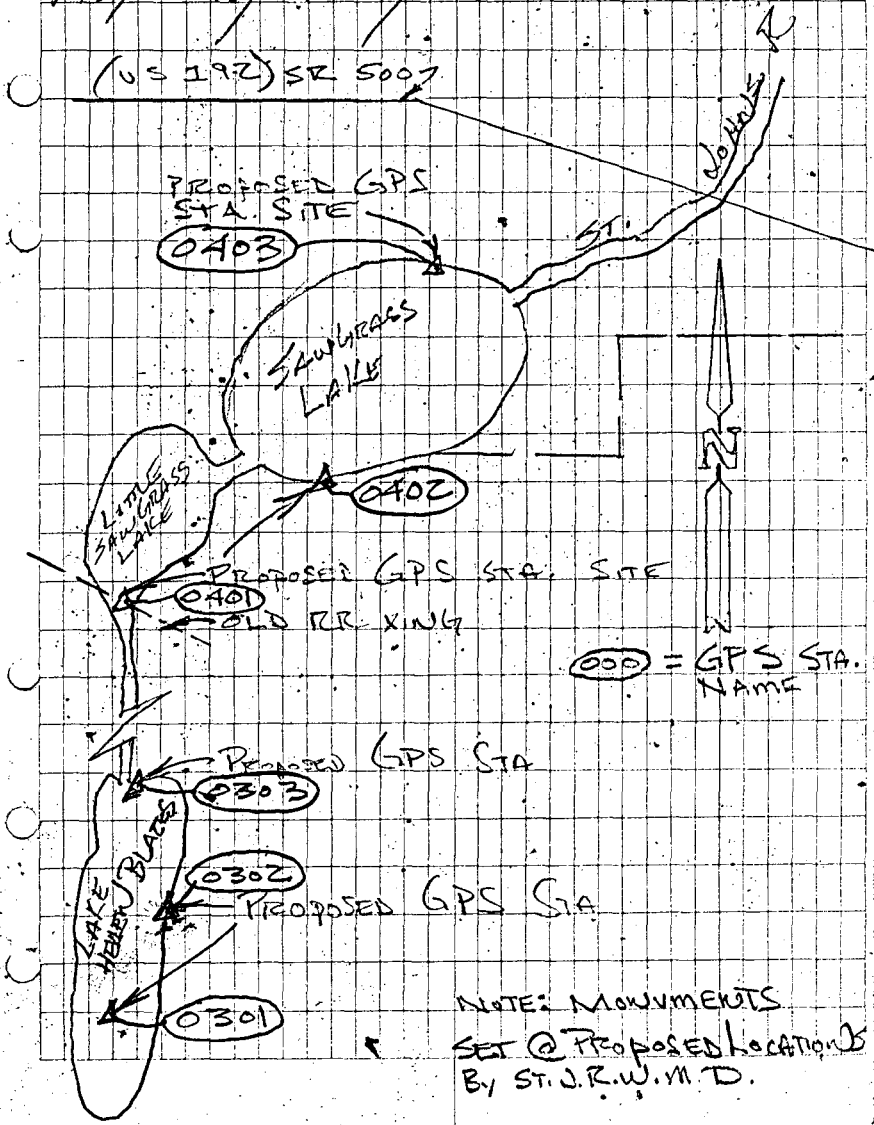 (US 192) SR 500
ST. JOHNS R
PROPOSED GPS
STA. SITE
0403
SAWGRASS
LAKE
N
0402
LITTLE
SAWGRASS
LAKE
PROPOSED GPS STA. SITE
0401
OLD RR XING
000 = GPS STA.
NAME
PROPOSED GPS STA
0303
LAKE
HELEN BLAZES
0302
PROPOSED GPS STA
0301
NOTE: MONUMENTS
SET @ PROPOSED LOCATIONS
By ST. J.R.W.M.D.